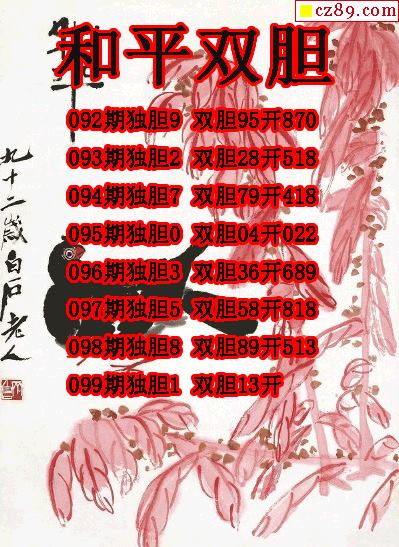 cz89.com
和平
和平双胆
092期独胆9 双胆95开870
093期独胆2 双胆28开518
094期独胆7 双胆79开418
095期独胆0 双胆04开022
096期独胆3 双胆36开689
097期独胆5 双胆58开818
098期独胆8 双胆89开513
099期独胆1 双胆13开
九十二岁白石老人